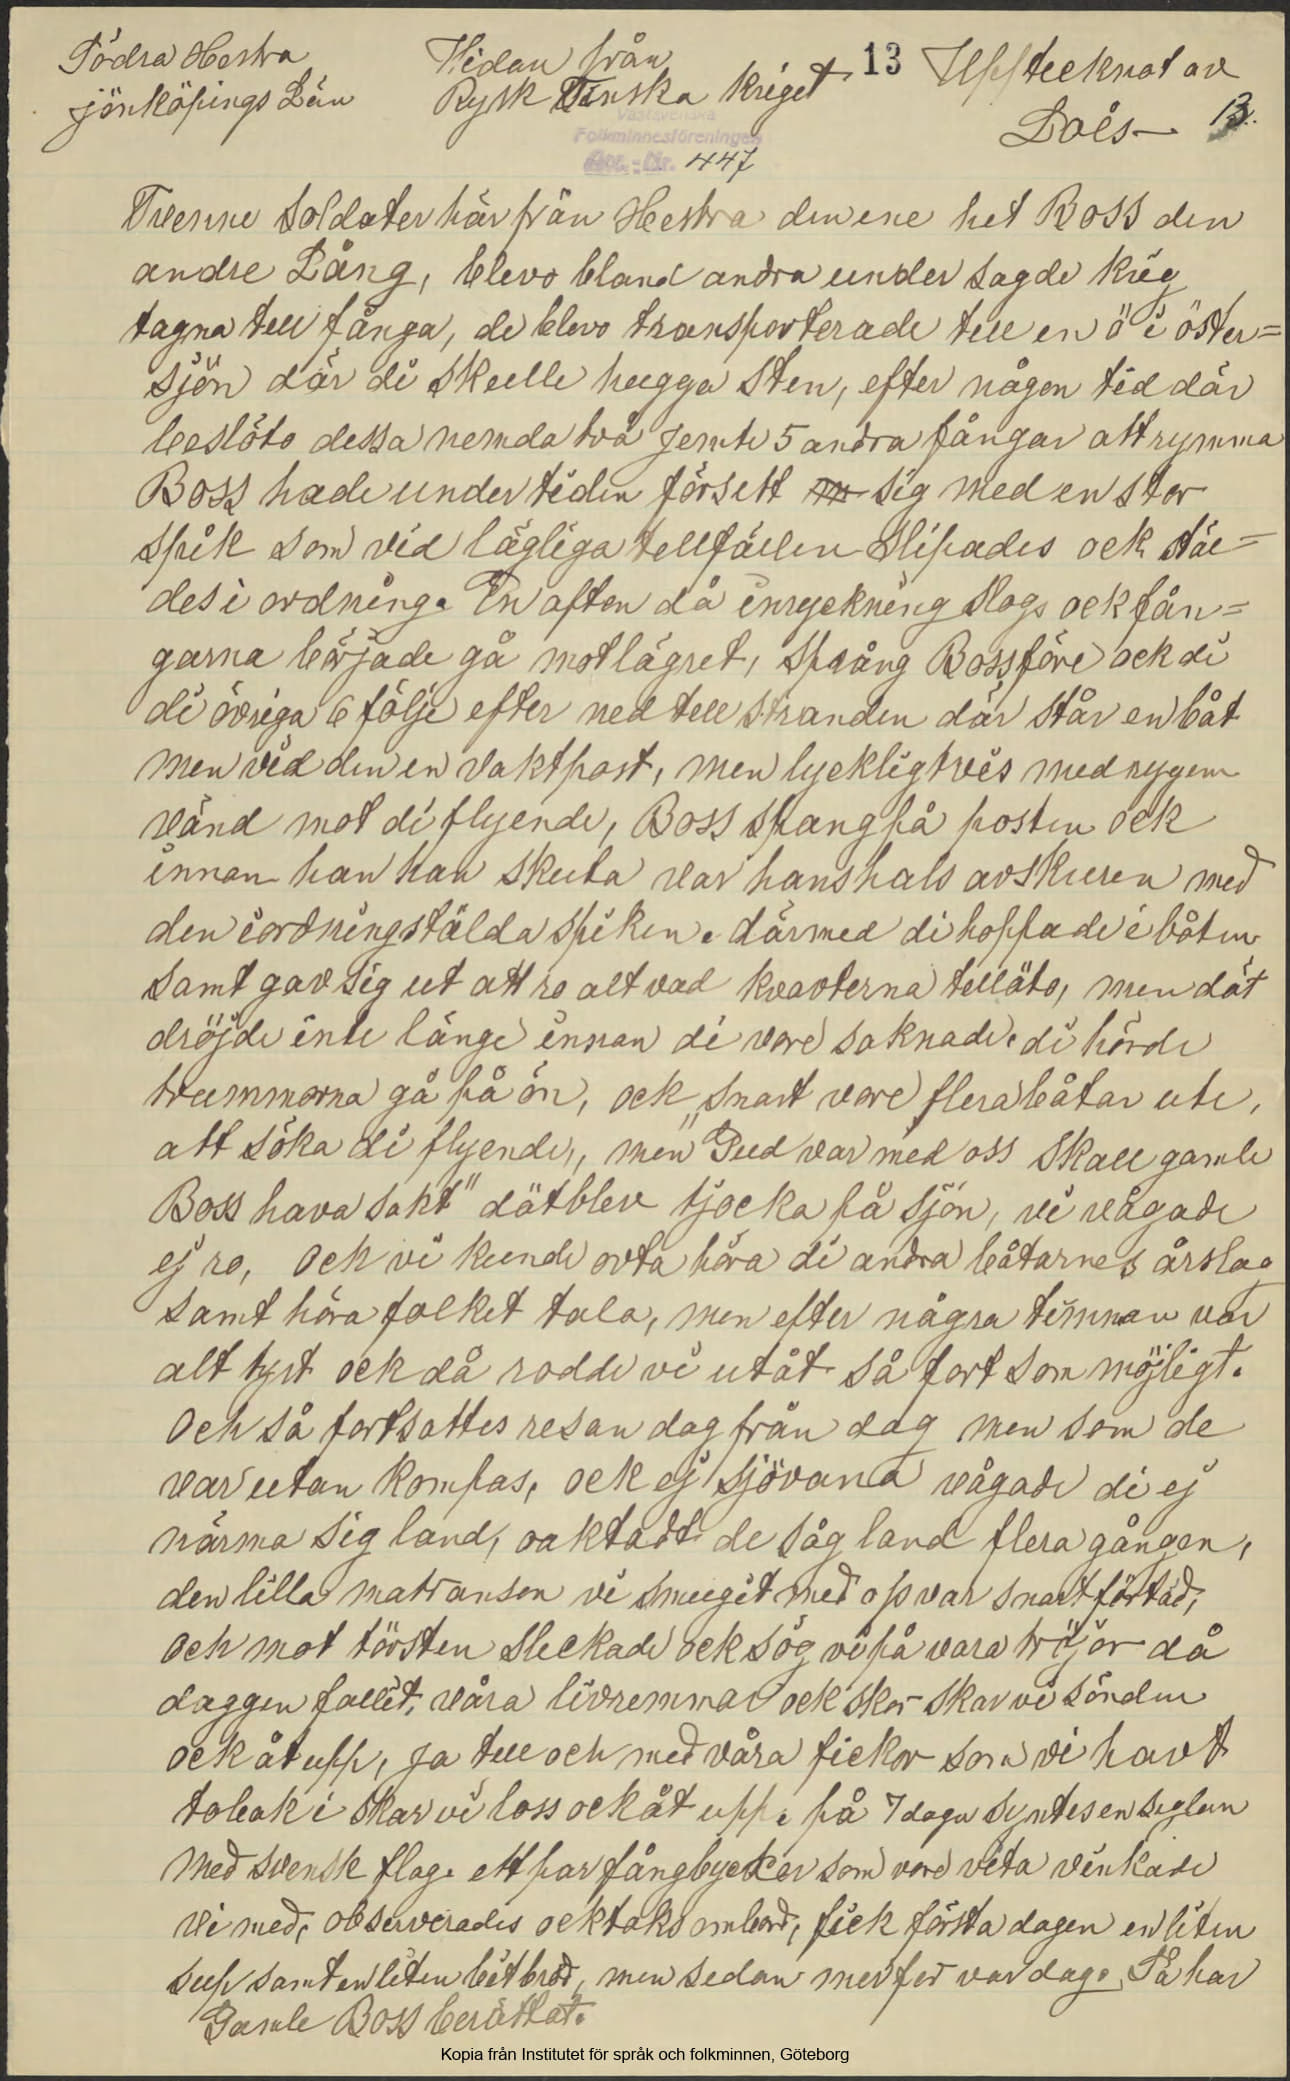 Södra Hestra
jönköpings Län
Sidan från
Rysk Finska kriget
13
Upptecknat av
Loés
13.
Västsvenska
Folkminnesföreningen
Acc.-Nr. 447
Tvenne soldater här från Hestra den ene het Boss den
andre Lång, blevo bland andra under sagde krig
tagna till fånga, de blevo transporterade till en ö i öster=
sjön där di skulle hugga sten, efter någon tid där
beslöto dessa nemda två jemte 5 andra fångar att rymma
Boss hade under tiden försett sig med en stor
spik som vid lägliga tillfällen slipades ock stäl=
des i ordning. En afton då inryckning slogs ock fån=
garna började gå mot lägret, språng Boss före ock di
di övriga 6 följe efter ned till stranden där står en båt
men vid den en vaktpost, men lyckligtvis med rygen
vänd mot di flyende, Boss spang på posten ock
innan han han skuta var hans hals avskuren med
den iordningstälda spiken. därmed di hoppade i båten
samt gav sig ut att ro alt vad kravterna tilläto, men dät
dröjde inte länge innan di vore saknade. di hörde
trummorna gå på ön, ock snart vore flera båtar ute,
att söka di flyende, men "Gud var med oss skall gamle
Boss hava sakt" dät blev tjocka på sjön, vi vågade
ej ro, och vi kunde ovta höra di andra båtarnes årslag
samt höra folket tala, men efter några timmar var
alt tyst ock då rodde vi utåt så fort som möjligt.
Och så fortsattes resan dag från dag men som de
var utan kompas, ock ej sjövana vågade di ej
närma sig land, oaktadt de såg land flera gånger,
den lilla matransen vi smugit med op var snart förtäd,
och mot törsten sleckade ock sög vi på vara tröjor då
daggen fallit, våra livremmar ock skor skar vi sönder
ock åt upp, ja till och med våra fickor som vi havt
tobak i skar vi loss ock åt upp. på 7 dagen syntes en seglare
med svensk flag. ett par fångbyckor som vore vita vinkade
vi med, observerades ock toks ombord, fick första dagen en liten
sup samt en liten bit bröd, men sedan mer för var dag. Så har
Gamle Boss berättat.
Kopia från Institutet för språk och folkminnen, Göteborg